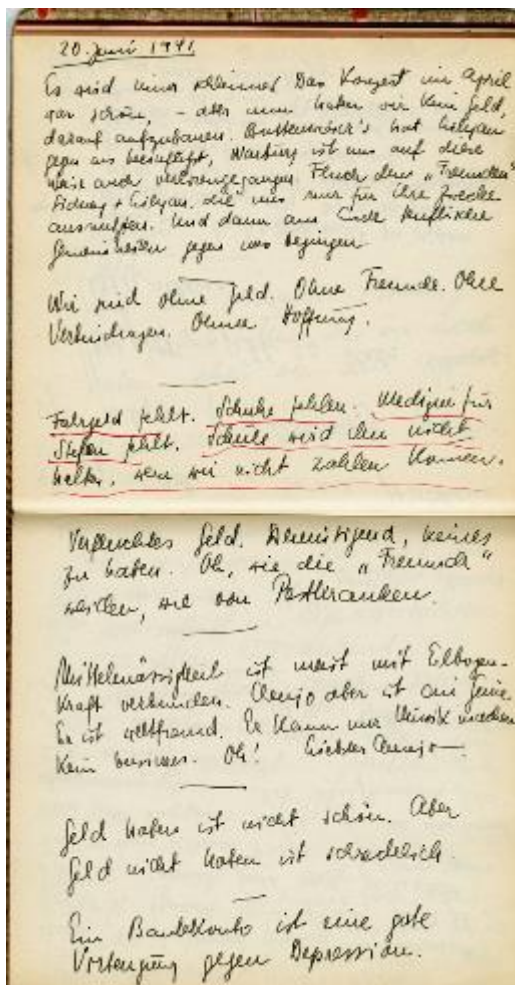 20. Juni 1941.
Es wird immer schlimmer. Das Konzert im April
war schön, – aber nun haben wir kein Geld,
darauf aufzubauen. hat
gegen uns, Warburg ist uns auf diese
Weise auch verlorengegangen. Fluch den „Freunden"
Sidney + die uns nur für ihre Zwecke
ausnutzten. Und dann am Ende teuflische
Gemeinheiten gegen uns begingen
Wir sind ohne Geld. Ohne Freunde. Ohne
Verbindungen. Ohne Hoffnung.
Fahrgeld fehlt. Schuhe fehlen. Medizin für
Stefan fehlt. Schule wird ihn nicht
halten, wenn wir nicht zahlen können.
Verfluchtes Geld. Demütigend, keines
zu haben. Oh, wie die „Freunde"
weichen, wie von Pestkranken.
Mittelmässigkeit ist meist mit Elbogen-
kraft verbunden. aber ist ein Genie.
Er ist weltfremd. Er kann nur Musik machen
kein business. Oh!
Geld haben ist nicht schön. Aber
Geld nicht haben ist schrecklich.
Ein Bankkonto ist eine gute
Vorbeugung gegen Depression.